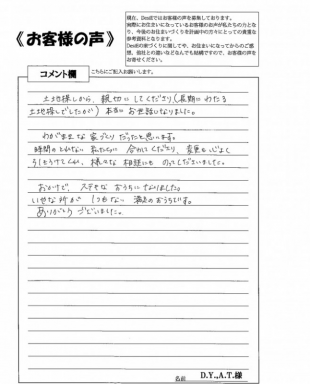 《お客様の声》
現在、DesiEではお客様の声を募集しております。
実際にお住まいになっているお客様のお声が私たちの力となり、今後のお住まいづくりを計画中の方々にとっての貴重な参考資料となります。
DesiEの家づくりに関してや、お住まいになってからのご感想、他社との違いなどなんでも結構ですので、お客様の声をお寄せください。
コメント欄
こちらにご記入お願いします。
土地探しから、親切にしてくださり(長期にわたる
土地探しでしたが) 本当にお世話になりました。
わがままな家づくりだったと思います。
時間のとれない私たちに合わせてくださり、変更も心よく
うけとってくれ、様々な相談にものってくださいました。
おかげで、ステキなおうちになりました。
いやな所が1つもない満足のおうちです。
ありがとうございました。
名前 D.Y.,A.T.様